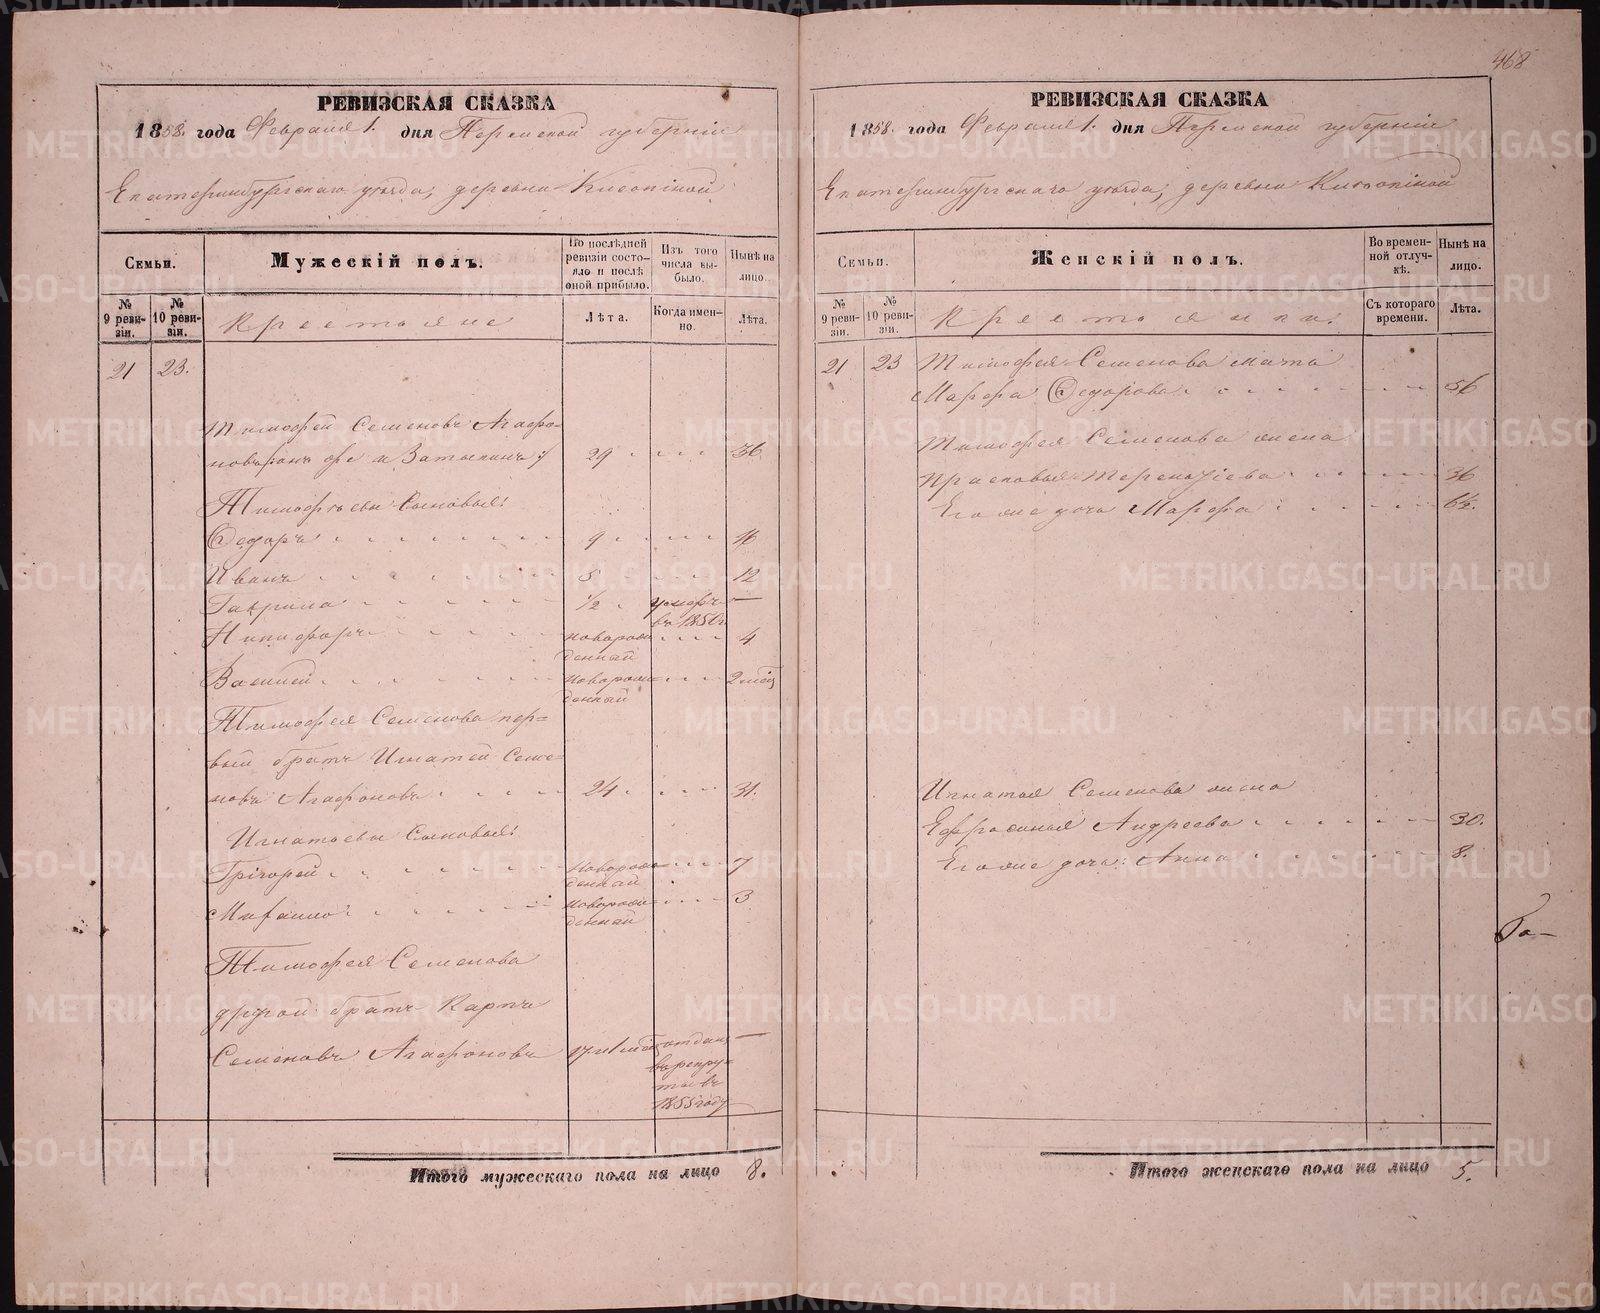 468
РЕВИЗСКАЯ СКАЗКА
1858. года Февраля 1. дня Пермской губерніи
Екатеринбургскаго уѣзда, деревни
Семьи.
Мужескій полъ.
По послѣдней ревизіи состояло и послѣ оной прибыло.
Изъ того числа выбыло.
Нынѣ на лицо.
№ 9 ревизіи.
№ 10 ревизіи.
Крестьяне
Лѣта.
Когда именно.
Лѣта.
21 23.
Тимофей Семеновъ Агафо-
новъ 29 36
Тимофѣевы Сыновья:
Федоръ 9 16
Иванъ 5 12
Гаврила 1/2 умеръ —
въ 1850г.
Никифоръ новорож 4
денный
Василей новорож 2 мѣс
денный
Тимофея Семенова пер-
вый братъ Игнатей Семе-
новъ Агафоновъ 24 31.
Игнатьевы Сыновья:
Григорей новорож 7
денный
Михаило новорож 3
денный
Тимофея Семенова
другой братъ Карпъ
Семеновъ Агафоновъ 17 отданъ —
въ рекру-
ты въ
1855 году
Итого мужескаго пола на лицо 8.
РЕВИЗСКАЯ СКАЗКА
1858. года Февраля 1. дня Пермской губерніи
Екатеринбургскаго уѣзда, деревни
Семьи.
Женскій полъ.
Во временной отлучкѣ.
Нынѣ на лицо.
№ 9 ревизіи.
№ 10 ревизіи.
Крестьянки.
Съ котораго времени.
Лѣта.
21 23 Тимофея Семенова мать
Марфа Федорова 56
Тимофея Семенова жена
Прасковья Терентіева 36
Его же дочь Марфа 6½.
Игнатья Семенова жена
Ефросинья Андреева 30.
Его же дочь Анна 8.
Итого женскаго пола на лицо 5.
METRIKI.GASO-URAL.RU